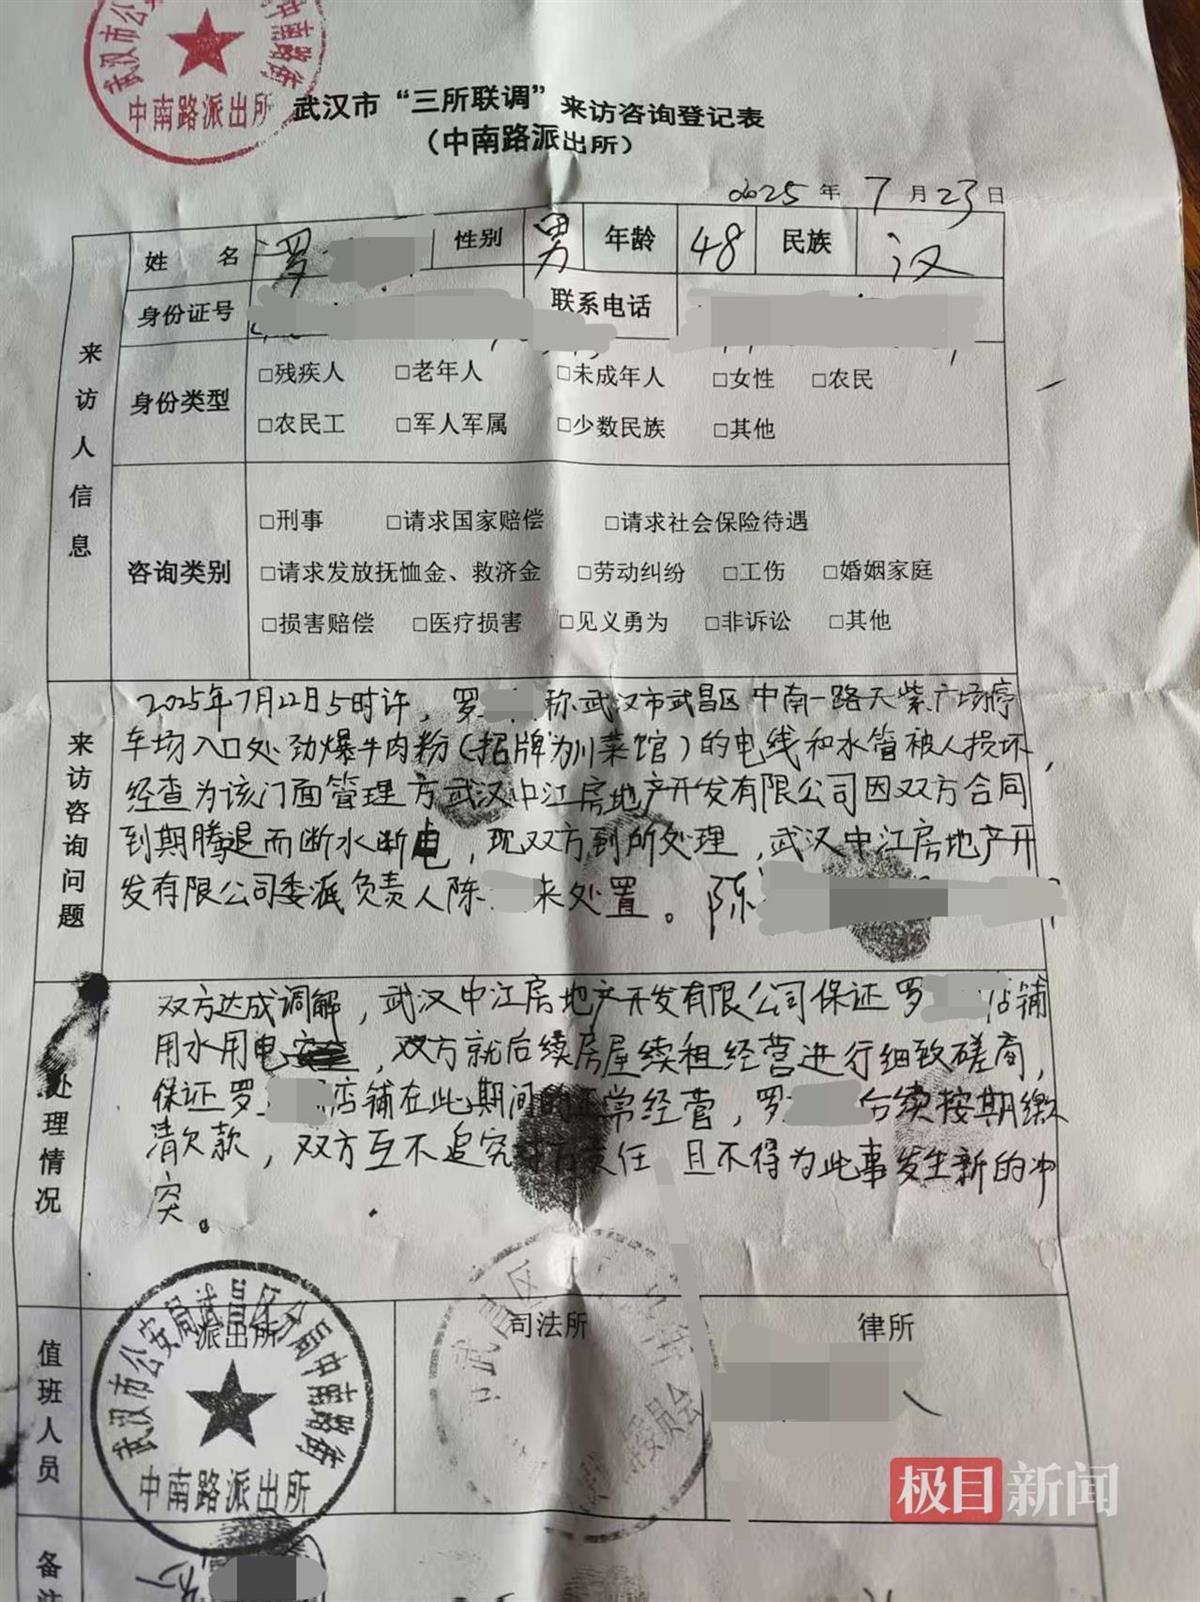 武汉市公安
中南路街
中南路派出所
武汉市“三所联调”来访咨询登记表
（中南路派出所）
2025年7月23日
来访人信息
姓名 罗 性别 男 年龄 48 民族 汉
身份证号 联系电话
身份类型
□残疾人 □老年人 □未成年人 □女性 □农民
□农民工 □军人军属 □少数民族 □其他
咨询类别
□刑事 □请求国家赔偿 □请求社会保险待遇
□请求发放抚恤金、救济金 □劳动纠纷 □工伤 □婚姻家庭
□损害赔偿 □医疗损害 □见义勇为 □非诉讼 □其他
来访咨询问题
2025年7月22日5时许，罗 称武汉市武昌区中南一路天紫广场停
车场入口处劲爆牛肉粉（招牌为川菜馆）的电线和水管被人损坏，
经查为该门面管理方武汉中江房地产开发有限公司因双方合同
到期腾退而断水断电，现双方到所处理，武汉中江房地产开
发有限公司委派负责人陈 来处置。陈
处理情况
双方达成调解，武汉中江房地产开发有限公司保证罗 店铺
用水用电，双方就后续房屋续租经营进行细致磋商，
保证罗 店铺在此期间的正常经营，罗 继续按期缴
清欠款，双方互不追究对方责任 且不得为此事发生新的冲
突。
值班人员
派出所 司法所 律所
武汉市公安局武昌区分局中南路街
中南路派出所
武昌区
委员会
极目新闻
备注